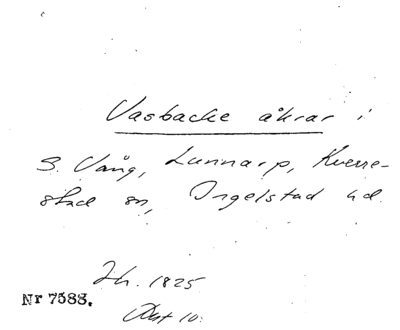 Vasbacke åkrar i
S. Vång, Lunnarp, Kverre-
stad sn, Ingelstad hd.
Jh. 1825
Nr 7588.
Avst 10: